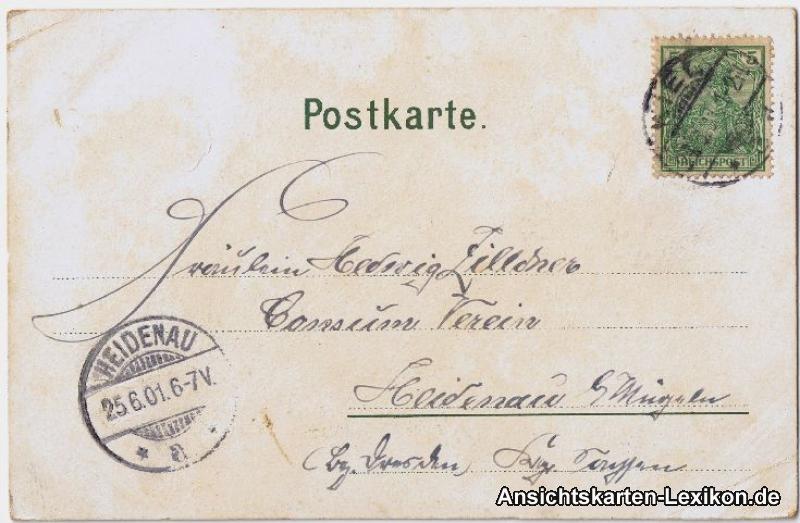 Postkarte.
5
REICHSPOST
Fräulein Hedwig Zilldner
Consum Verein
Heidenau b/Mügeln
(bz. Dresden, Kgr Sachsen
HEIDENAU
25.6.01.6-7V.
* a *
Ansichtskarten-Lexikon.de